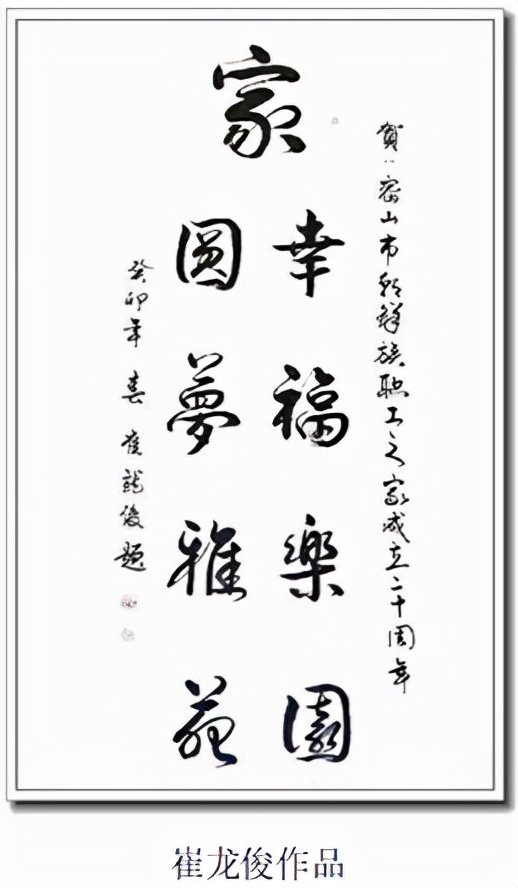 賀密山市朝鲜族职工之家成立二十周年
家
幸福樂園
圆夢雅苑
癸卯年春崔龍俊题
崔龙俊作品